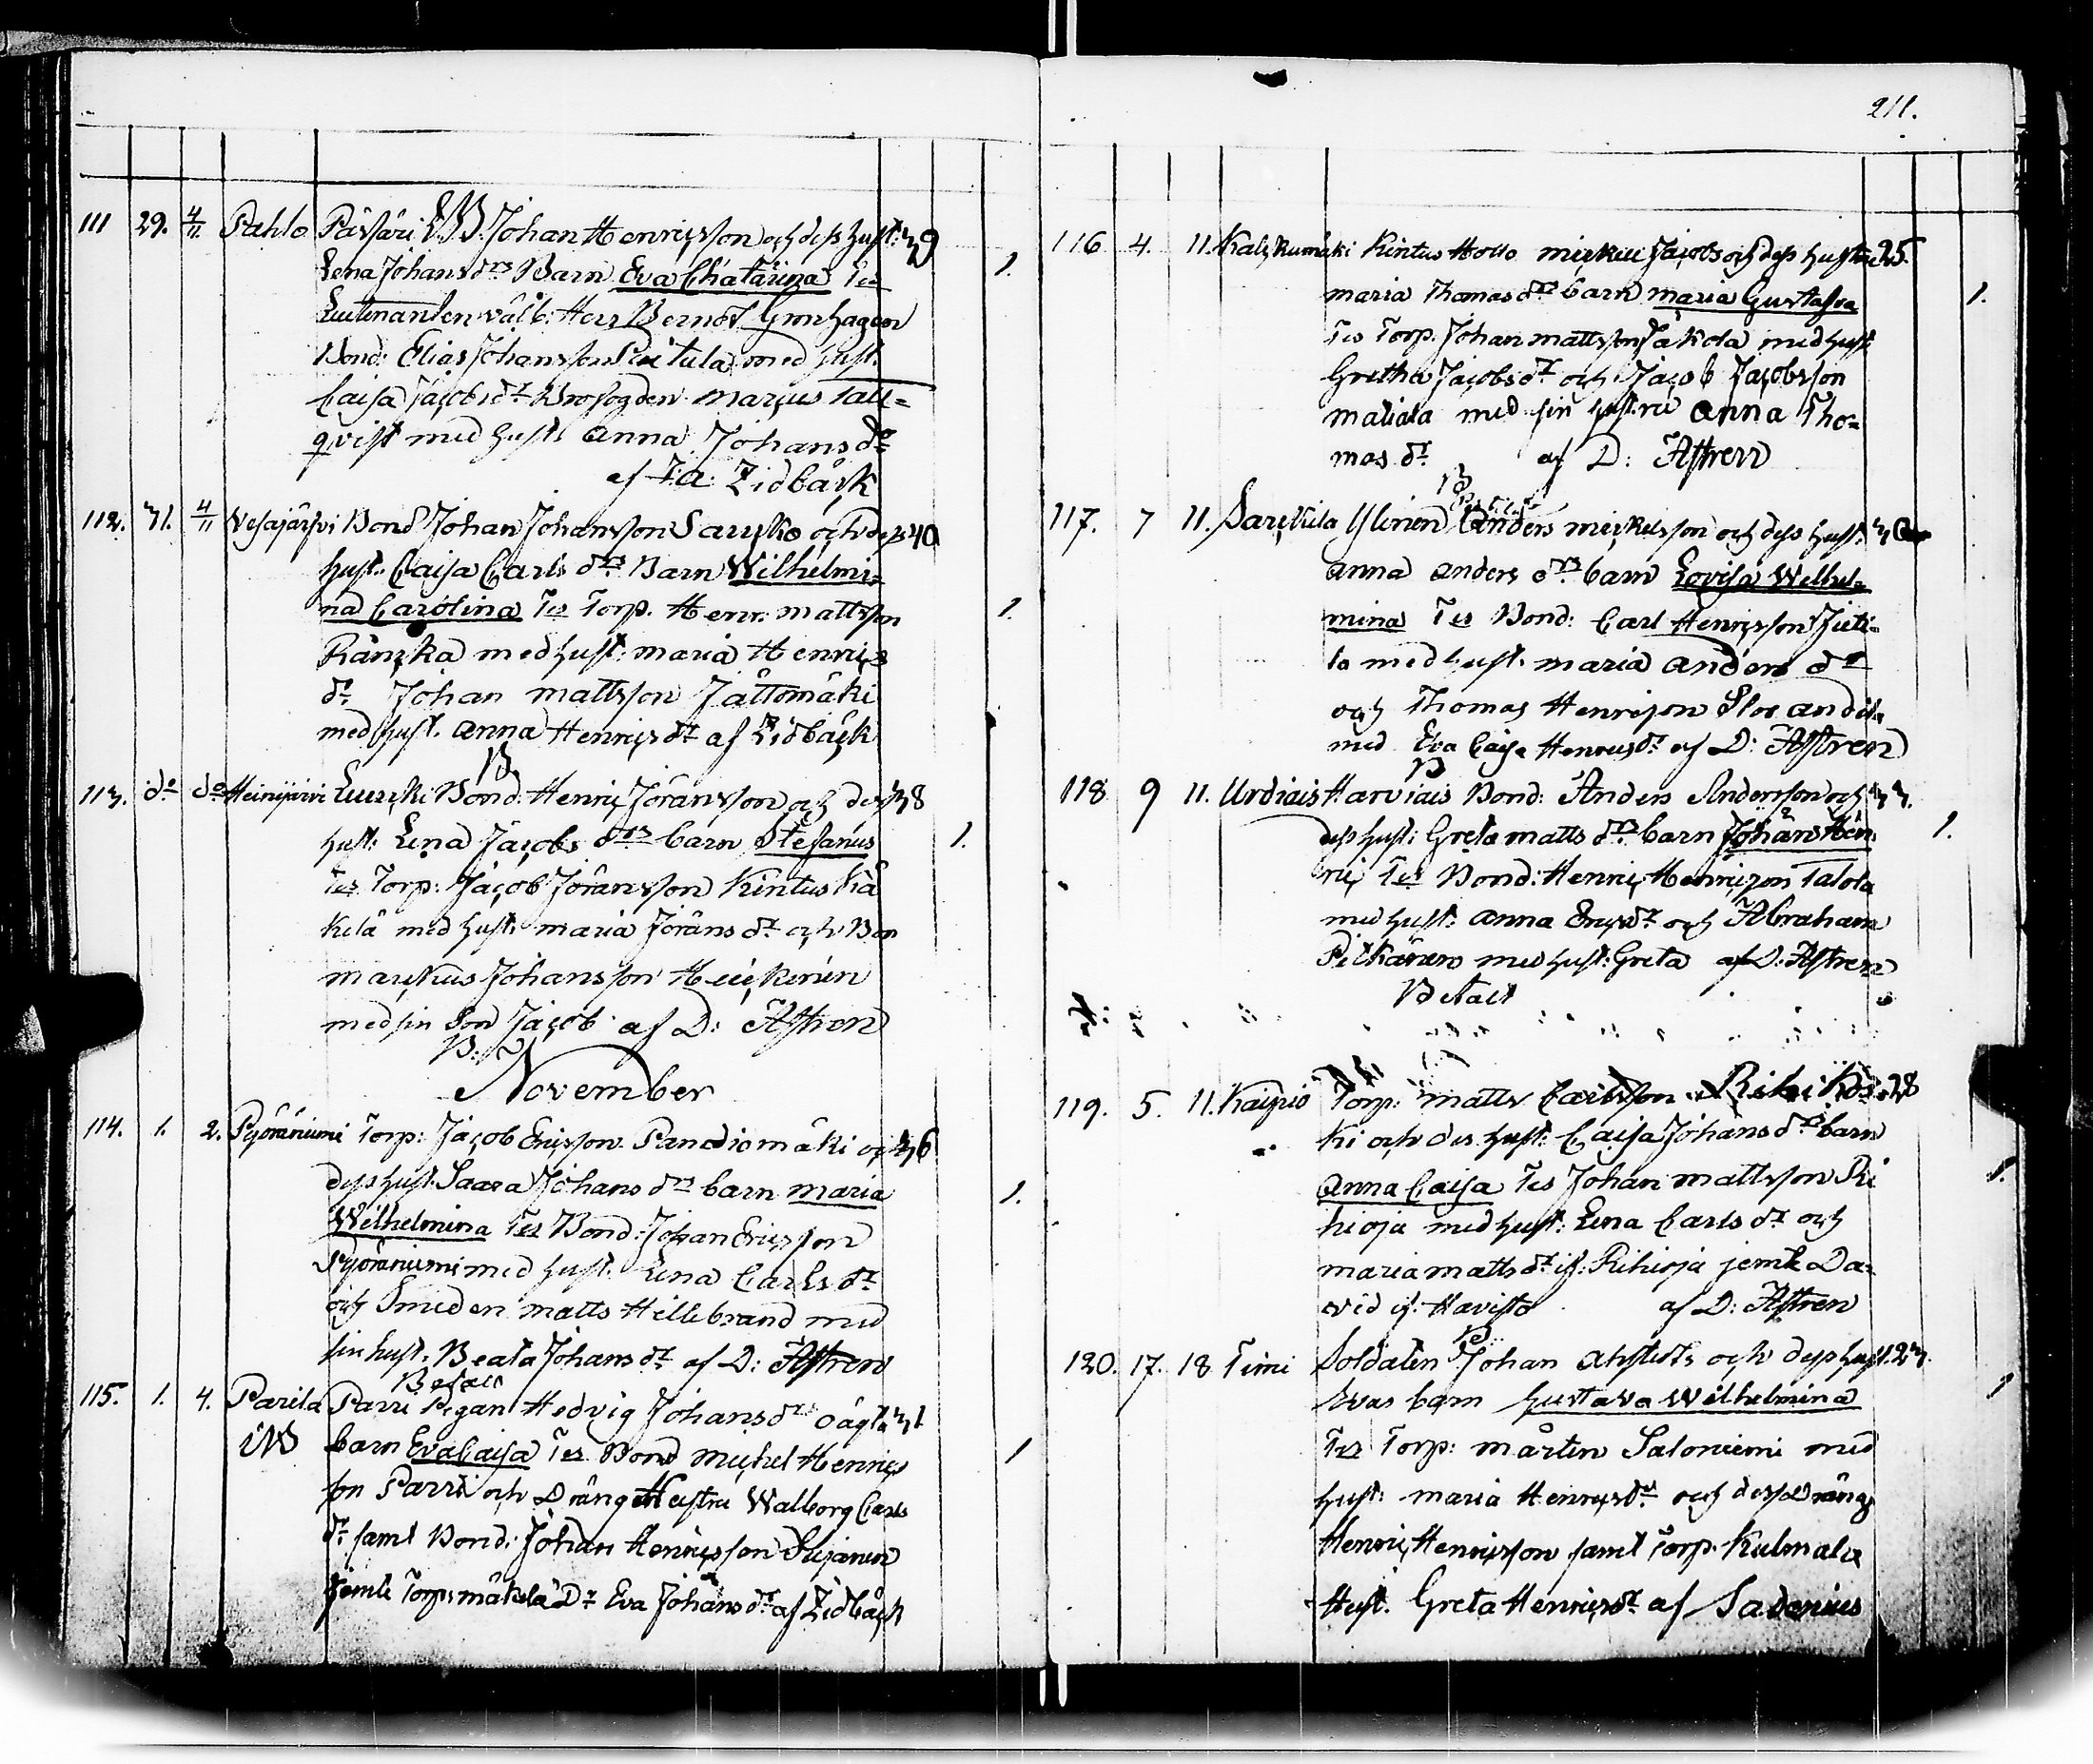 111 29. 4/11 Pahlo Johan Henricsson och dess hust: 39
Lena Johans drs Barn Eva Chatarina Tes 1.
Luitenanten välb: Herr Berndt Grönhagen
Bond: Elias Johansson med hust.
Caisa Jacobs dr marcus Tall=
qvist med hust: Anna Johans dr
af Zidbäck
112. 31. 4/11 Vesajärfvi Bond Johan Johansson och des 40
hust: Caisa Carls drs Barn Wilhelmi=
na Carolina Tes Torp. Henr: mattsson 1.
med hust: maria Henrics
dr Johan mattsson Jättömäki
med hust. Anna Henrics dr af Zidbäck
B
113. do do Heinijärvi Bond: Henric Jöransson och des 38
hust: Lena Jacobs drs barn Stefanus 1.
Tes Torp: Jacob Jöransson Kintus Kä
kelä med hust: maria Jörans dr och Bon
marckus Johansson Heickinen
med sin Son Jacob af D: Astren
B:
November
114. 1. 2. Pyöräniemi Torp: Jacob Ericsson mäki och 36
dess hust: Saara Johans drs barn maria 1.
Wilhelmina Tes Bond: Johan Ericsson
Pyöräniemi med hust. Lena Carls dr
och Smeden matts Hillebrand med
sin hust. Beata Johans dr af D: Astren
115. 1. 4. Parila Parri Pigan Hedvig Johans dr oägta 31
barn Eva Caisa Tes Bond Michel Henrics 1
son Parri och Dräng Hustru Walborg Carls
dr samt Bond: Johan Henricsson
jemte Torp: mäkelä Dr Eva Johans dr af Zidbäck
211.
116 4. 11. Kintus Hollo mickell Jacobs och dess hustru 25.
maria Thomas drs barn maria Gustafva 1.
Tes Torp. Johan mattsson med hust
Gretha Jacobs dr och Jacob Jacobsson
med sin hustru Anna Tho=
mas dr af D: Astren
B
117. 7 11. Sarckila Ylinen Anders mickelsson och dess hust: 3
Anna Anders drs barn Lovisa Wilhel=
mina Tes Bond: Carl Henricsson Juti=
la med hust. maria Anders dr
och Thomas Henricson
med Eva Caisa Henrics dr af D: Astren
B
118 9 11. Urdiais Harviais Bond: Anders Andersson och 33.
dess hust: Greta matts drs barn Johan Hen 1.
ric Tes Bond: Henric Henricson Talola
med hust: Anna Erics dr och Abraham
Pitkänen med hust: Greta af D: Astren
Betalt
119. 5. 11. Kaipio Torp: matts Carlsson Rihikos= 28
ki och des hust: Caisa Johans drs barn
Anna Caisa Tes Johan mattsson Ri 1.
hioja med hust: Lena Carls dr och
maria matts dr if: Rihioja jemte Da=
vid if: Havisto af D: Astren
B
120. 17. 18 Timi Soldaten Johan och dess hust. 23.
Evas barn Gustava Wilhelmina 1
Tes Torp: mårten Saloniemi med
hust: maria Henrics dr och dess Dräng
Henric Henricsson samt Torp. Kulmala
Hust. Greta Henrics dr af Sadenius